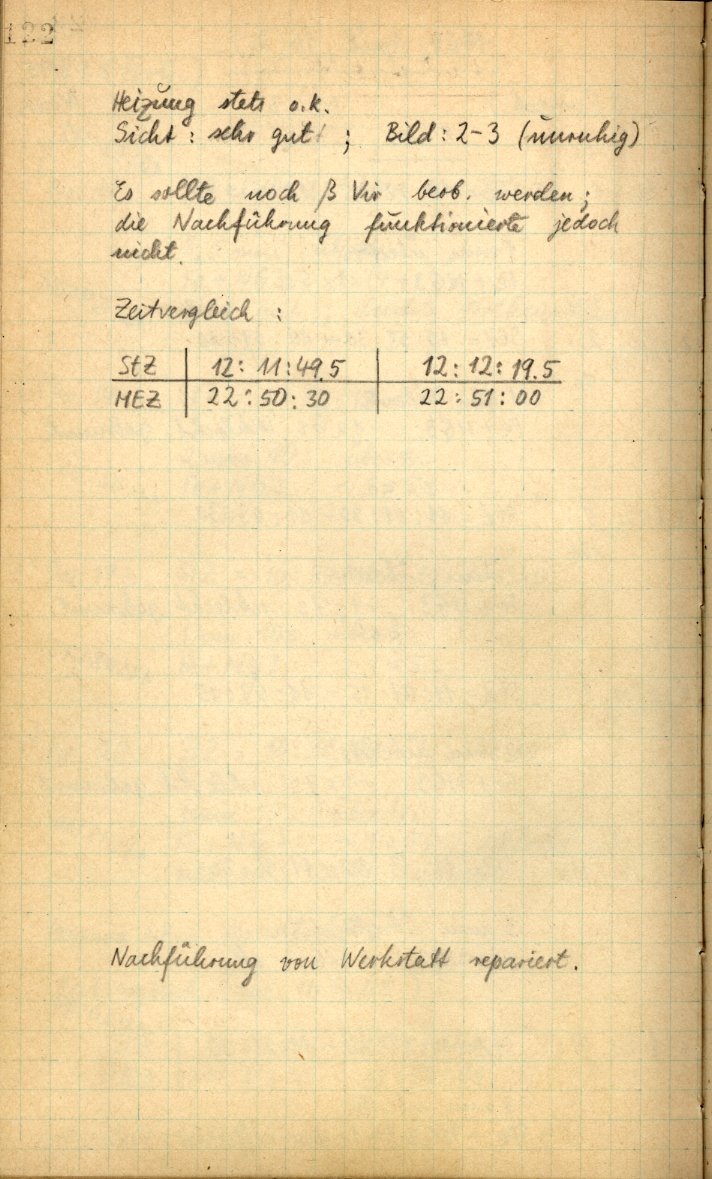 122
Heizung stets o.k.
Sicht : sehr gut ; Bild : 2-3 (unruhig)
Es sollte noch β Vir beob. werden ;
die Nachführung funktionierte jedoch
nicht.
Zeitvergleich :
StZ | 12 : 11 : 49.5 | 12 : 12 : 19.5
MEZ | 22 : 50 : 30 | 22 : 51 : 00
Nachführung von Werkstatt repariert.